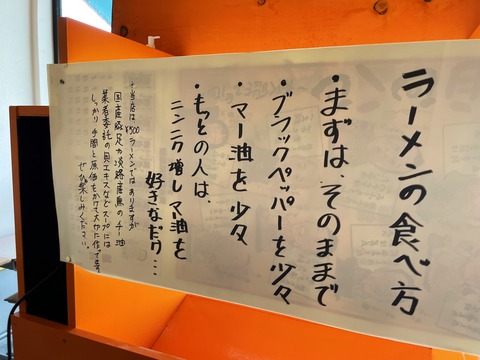 ラーメンの食べ方
・まずは、そのままで
・ブラックペッパーを少々
・マー油を少々
・もっとの人は、
ニンニク増し マー油を
好きなだけ…
当店は、¥500ラーメンではありますが
国産豚足や淡路産鳥のチー油
業者委託の貝エキスなどスープには
しっかり手間と原価をかけて大切に作ってます
ぜひ楽しみください。